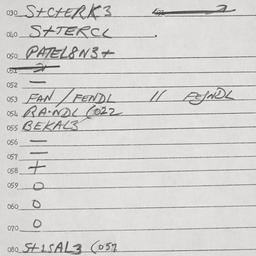 030 S+C+ERK3
040 S+TERCL .
050 PATEL8N3+
051
052 —
053 FAN / FENDL // FEJNDL
054 RA·NDL (022
055 BEKAL3
056 =
057 =
058 +
059 O
060 O
070 O
080 S+1SAL3 (057